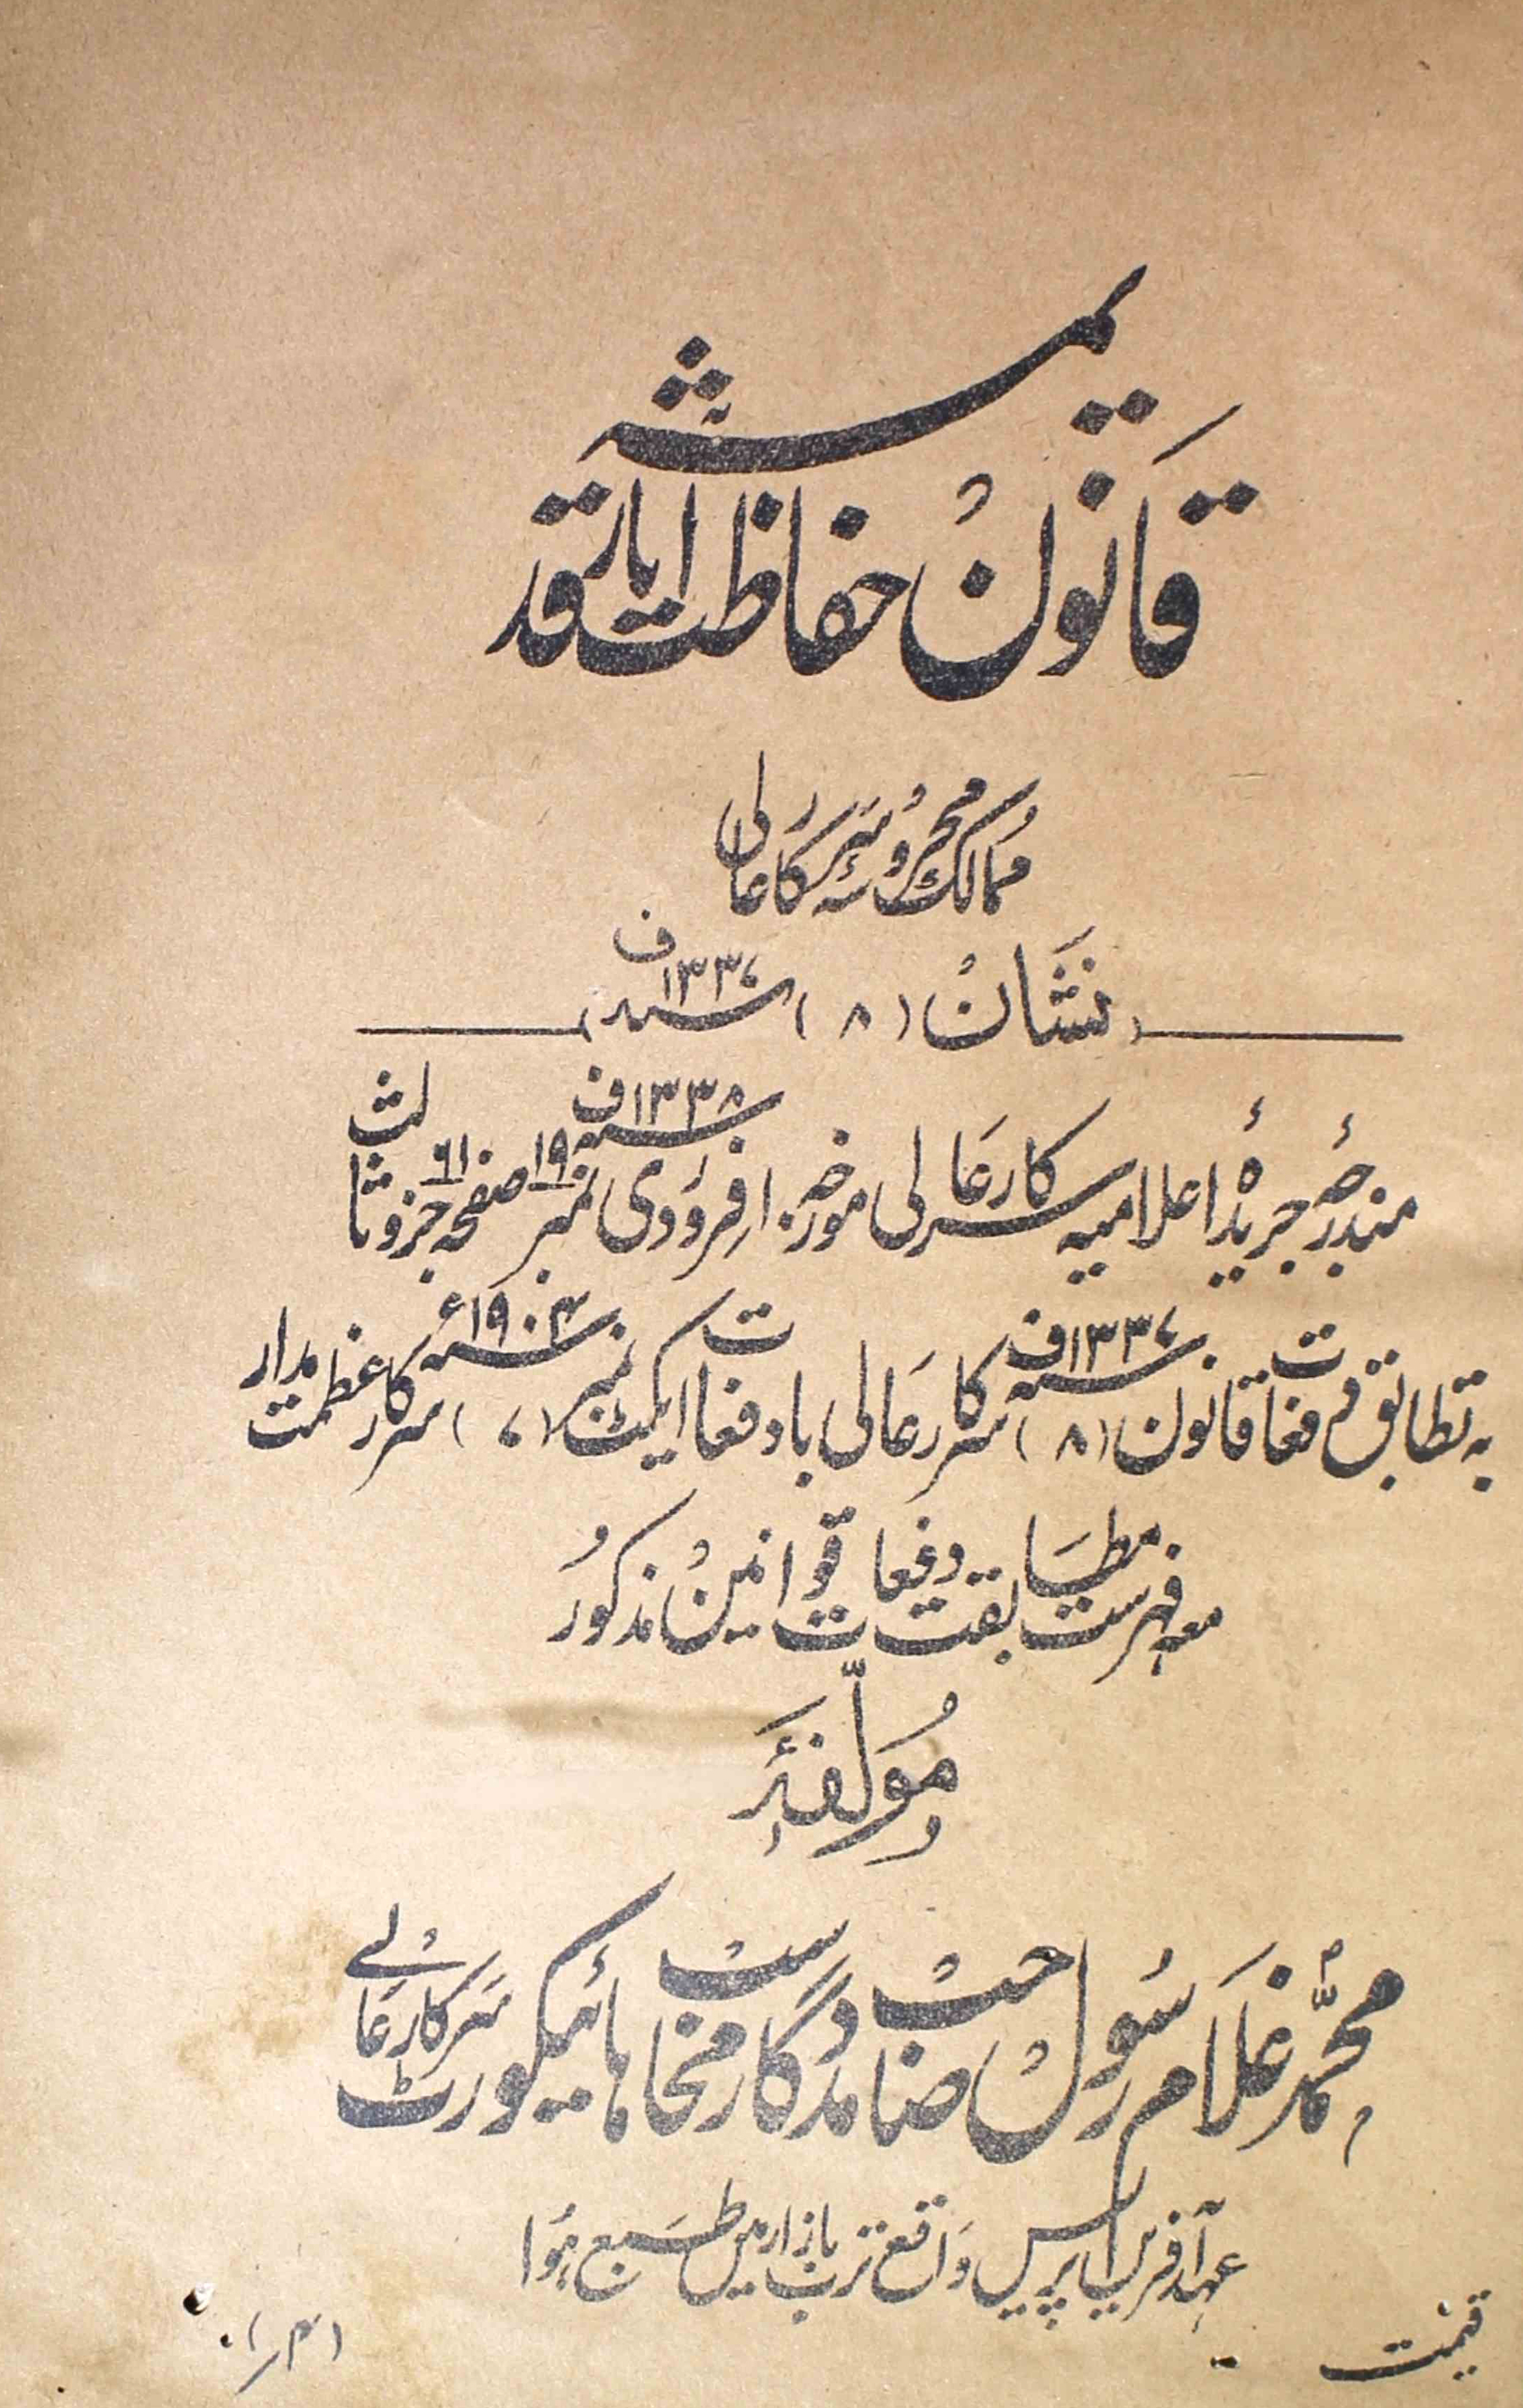 قانون حفاظت آثار قدیمہ
ممالک محروسہ سرکار عالی
نشان (۸) ۱۳۳۷ سنہ ف
مندرجہ جریدۂ اعلامیہ سرکار عالی مورخہ ۱۰ فروردی ۱۳۳۸ سنہ ف نمبر ۱۹ صفحہ ۶۱۰ جزو ثالث
بہ تطابق دفعات قانون (۸) ۱۳۳۷ سنہ ف سرکار عالی با دفعات ایکٹ نمبر (۷) ۱۹۰۴ سنہ ء سرکار عظمت مدار
معہ فہرست مطابقت دفعات قوانین مذکور
مؤلفہ
محمد غلام رسول صاحب مددگار معتمد ہائیکورٹ سرکار عالی
عہد آفریں پریس واقع ترپ بازار میں طبع ہوا
قیمت (۴ر)